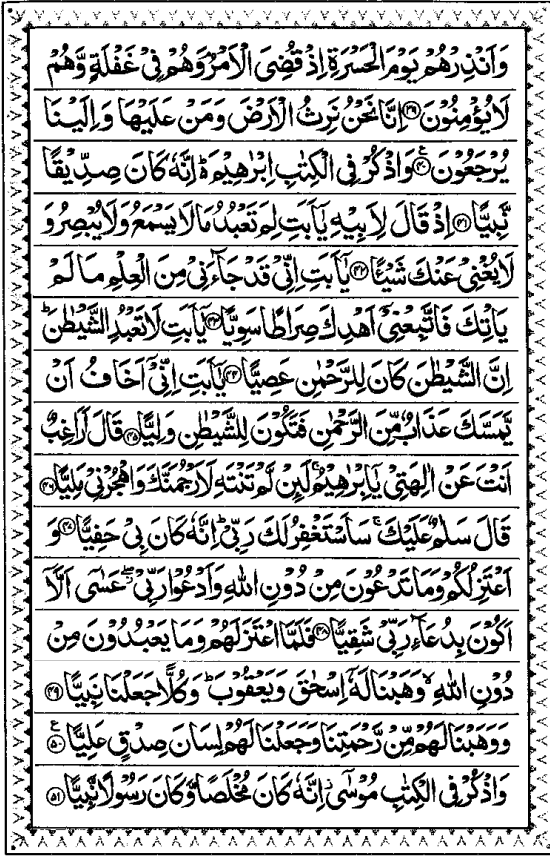 وَاَنْذِرْهُمْ يَوْمَ الْحَسْرَةِ اِذْ قُضِىَ الْاَمْرُ وَهُمْ فِىْ غَفْلَةٍ وَّهُمْ
لَا يُؤْمِنُوْنَ ۳۹ اِنَّا نَحْنُ نَرِثُ الْاَرْضَ وَمَنْ عَلَيْهَا وَاِلَيْنَا
يُرْجَعُوْنَ ۴۰ وَاذْكُرْ فِى الْكِتٰبِ اِبْرٰهِيْمَ ؕ اِنَّهٗ كَانَ صِدِّيْقًا
نَّبِيًّا ۴۱ اِذْ قَالَ لِاَبِيْهِ يٰۤاَبَتِ لِمَ تَعْبُدُ مَا لَا يَسْمَعُ وَلَا يُبْصِرُ وَ
لَا يُغْنِىْ عَنْكَ شَيْـًٔا ۴۲ يٰۤاَبَتِ اِنِّىْ قَدْ جَآءَنِىْ مِنَ الْعِلْمِ مَا لَمْ
يَاْتِكَ فَاتَّبِعْنِىْۤ اَهْدِكَ صِرَاطًا سَوِيًّا ۴۳ يٰۤاَبَتِ لَا تَعْبُدِ الشَّيْطٰنَ ؕ
اِنَّ الشَّيْطٰنَ كَانَ لِلرَّحْمٰنِ عَصِيًّا ۴۴ يٰۤاَبَتِ اِنِّىْۤ اَخَافُ اَنْ
يَّمَسَّكَ عَذَابٌ مِّنَ الرَّحْمٰنِ فَتَكُوْنَ لِلشَّيْطٰنِ وَلِيًّا ۴۵ قَالَ اَرَاغِبٌ
اَنْتَ عَنْ اٰلِهَتِىْ يٰۤاِبْرٰهِيْمُ ۚ لَئِنْ لَّمْ تَنْتَهِ لَاَرْجُمَنَّكَ وَاهْجُرْنِىْ مَلِيًّا ۴۶
قَالَ سَلٰمٌ عَلَيْكَ ۚ سَاَسْتَغْفِرُ لَكَ رَبِّىْ ؕ اِنَّهٗ كَانَ بِىْ حَفِيًّا ۴۷ وَ
اَعْتَزِلُكُمْ وَمَا تَدْعُوْنَ مِنْ دُوْنِ اللّٰهِ وَاَدْعُوْا رَبِّىْ ۖ عَسٰۤى اَلَّاۤ
اَكُوْنَ بِدُعَآءِ رَبِّىْ شَقِيًّا ۴۸ فَلَمَّا اعْتَزَلَهُمْ وَمَا يَعْبُدُوْنَ مِنْ
دُوْنِ اللّٰهِ ۙ وَهَبْنَا لَهٗۤ اِسْحٰقَ وَيَعْقُوْبَ ؕ وَكُلًّا جَعَلْنَا نَبِيًّا ۴۹
وَوَهَبْنَا لَهُمْ مِّنْ رَّحْمَتِنَا وَجَعَلْنَا لَهُمْ لِسَانَ صِدْقٍ عَلِيًّا ۵۰
وَاذْكُرْ فِى الْكِتٰبِ مُوْسٰۤى ۫ اِنَّهٗ كَانَ مُخْلَصًا وَّكَانَ رَسُوْلًا نَّبِيًّا ۵۱